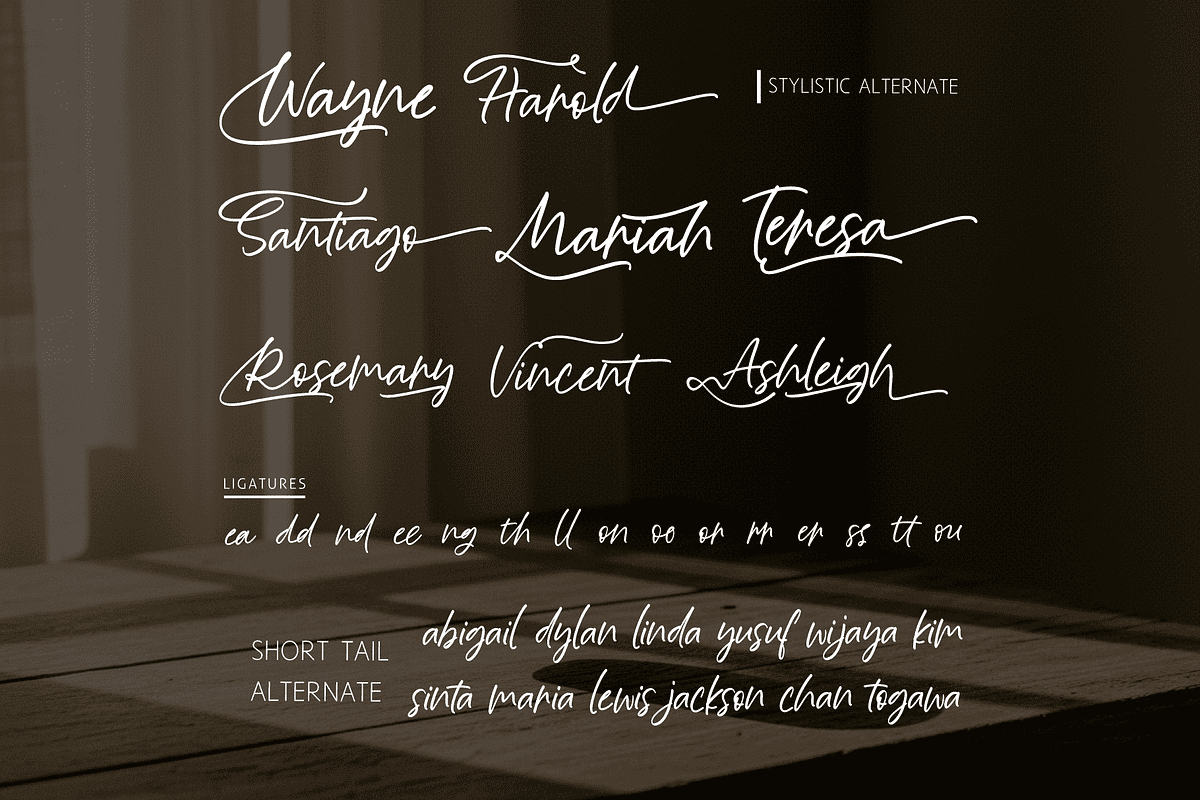 Wayne Harold
STYLISTIC ALTERNATE
Santiago Mariah Teresa
Rosemary Vincent Ashleigh
LIGATURES
ea dd nd ee ng th ll on oo or rr er ss tt ou
SHORT TAIL
ALTERNATE
abigail dylan linda yusuf wijaya kim
sinta maria lewis jackson chan togawa